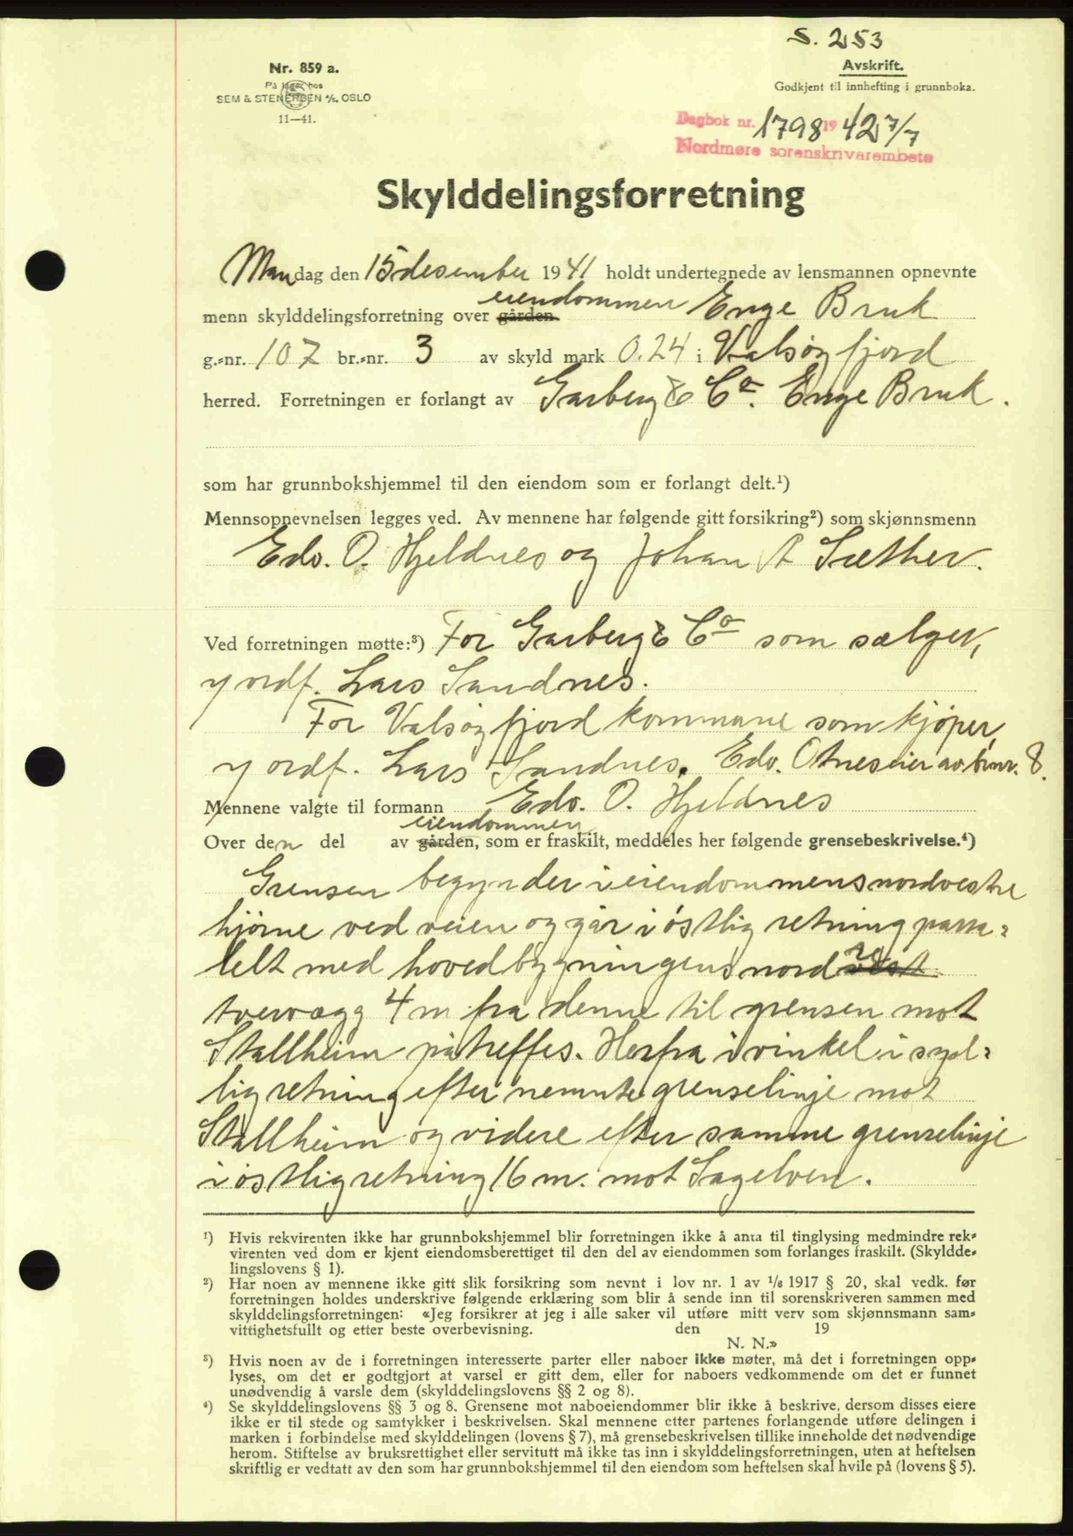 S. 253
Avskrift.
Godkjent til innhefting i grunnboka.
Nr. 859 a.
På lager hos
SEM & STENERSEN A/S, OSLO
11—41.
Dagbok nr. 1798 19 42 7/7
Nordmøre sorenskrivarembete
Skylddelingsforretning
Mandag den 15 desember 1941 holdt undertegnede av lensmannen opnevnte
menn skylddelingsforretning over gården eiendommen Enge Bruk
g.-nr. 107 br.-nr. 3 av skyld mark 0.24 i Valsøyfjord
herred. Forretningen er forlangt av Garberg & Co. Enge Bruk.
som har grunnbokshjemmel til den eiendom som er forlangt delt.¹)
Mennsopnevnelsen legges ved. Av mennene har følgende gitt forsikring²) som skjønnsmenn
Edv. O. Hjeldnes og Johan A Sæther.
Ved forretningen møtte:³) For Garberg & Co som sælger,
v ordf. Lars Sandnes.
For Valsøyfjord kommune som kjøper,
v ordf. Lars Sandnes. Edv. Otnes eier av br.nr. 8.
Mennene valgte til formann Edv. O. Hjeldnes
Over den del av gården eiendommen, som er fraskilt, meddeles her følgende grensebeskrivelse.⁴)
Grensen begynder i eiendommens nordvestre
hjørne ved veien og går i østlig retning parra-
lelt med hovedbygningens nordre vest
tvervægg 4 m fra denne til grensen mot
Stallheim påtreffes. Herfra i vinkel i syd-
lig retning efter nemnte grenselinje mot
Stallheim og videre efter samme grenselinje
i østlig retning 16 m. mot Sagelven.
¹) Hvis rekvirenten ikke har grunnbokshjemmel blir forretningen ikke å anta til tinglysing medmindre rek-
virenten ved dom er kjent eiendomsberettiget til den del av eiendommen som forlanges fraskilt. (Skyldde-
lingslovens § 1).
²) Har noen av mennene ikke gitt slik forsikring som nevnt i lov nr. 1 av 1/6 1917 § 20, skal vedk. før
forretningen holdes underskrive følgende erklæring som blir å sende inn til sorenskriveren sammen med
skylddelingsforretningen: «Jeg forsikrer at jeg i alle saker vil utføre mitt verv som skjønnsmann sam-
vittighetsfullt og etter beste overbevisning. den 19
N. N.»
³) Hvis noen av de i forretningen interesserte parter eller naboer ikke møter, må det i forretningen opp-
lyses, om det er godtgjort at varsel er gitt dem, eller for naboers vedkommende om det er funnet
unødvendig å varsle dem (skylddelingslovens §§ 2 og 8).
⁴) Se skylddelingslovens §§ 3 og 8. Grensene mot naboeiendommer blir ikke å beskrive, dersom disses eiere
ikke er til stede og samtykker i beskrivelsen. Skal mennene etter partenes forlangende utføre delingen i
marken i forbindelse med skylddelingen (lovens § 7), må grensebeskrivelsen tillike inneholde det nødvendige
herom. Stiftelse av bruksrettighet eller servitutt må ikke tas inn i skylddelingsforretningen, uten at heftelsen
skriftlig er vedtatt av den som har grunnbokshjemmel til den eiendom som heftelsen skal hvile på (lovens § 5).